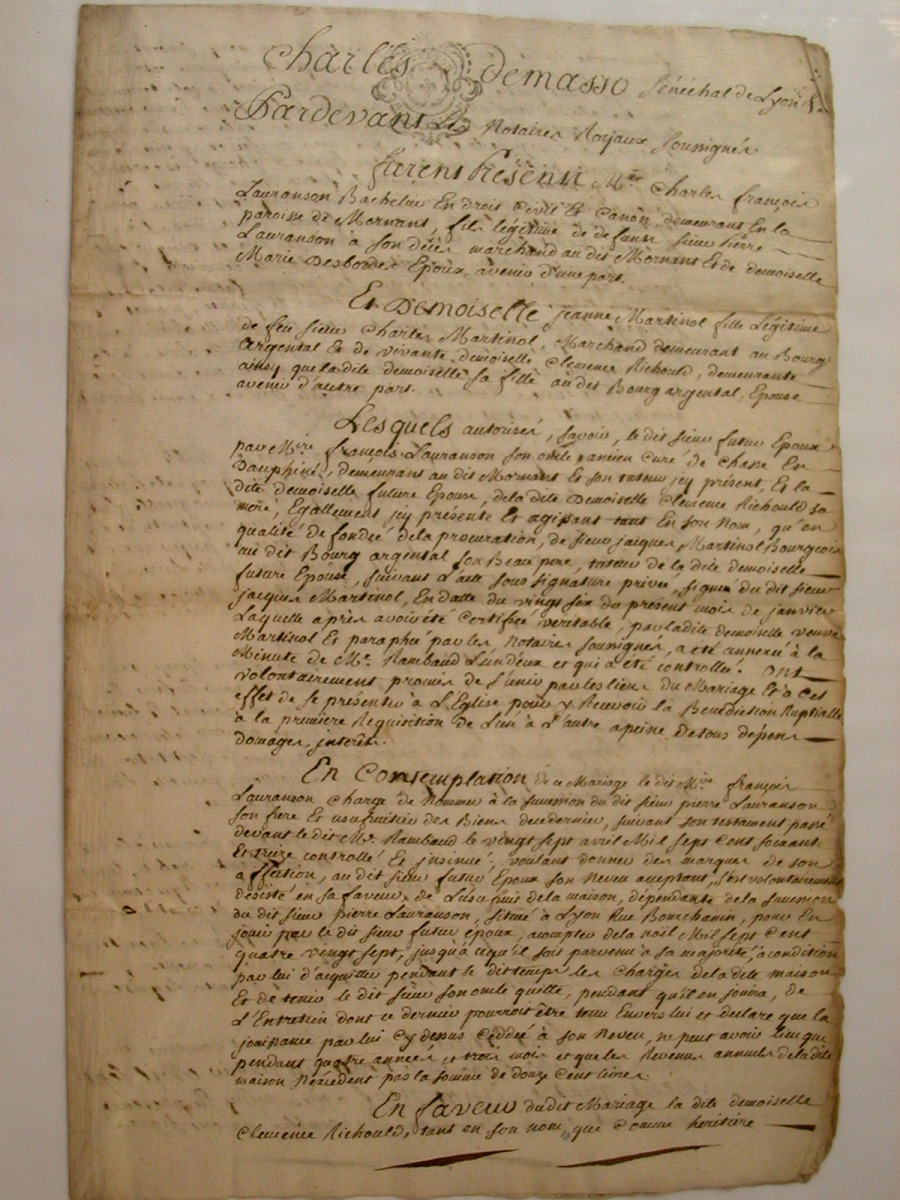 Charles Demasso Sénéchal de Lyon
Pardevant Les Notaires Royaux soussignés
furent Présents Mre Charles françois
Lauranson Bachelier En droit Civil Et Canon, demeurant En la
paroisse de Mornant, fils légitime de defunt sieur Pierre
Lauranson a son décès marchand au dit Mornant Et de demoiselle
Marie Desbordes Epoux avenir d'une part.
Et Demoiselle Jeanne Martinol fille Légitime
de feu sieur Charles Martinol, Marchand demeurant au Bourg
argental Et de vivante demoiselle Clemence Richould, demeurante
ainsy que la dite demoiselle sa fille au dit Bourg argental, Epouse
avenir d'autre part.
Lesquels autorisés, savoir, le dit sieur futur Epoux
par Mre françois Lauranson son oncle ancien Curé de Chasse En
Dauphiné, demeurant au dit Mornant Et son tuteur icy présent, Et la
dite demoiselle future Epouse, de la dite Demoiselle Clemence Richould sa
mère, Egallement icy présente Et agissant tant En son Nom, qu'en
qualité de fondée de la procuration, de sieur jacques Martinol Bourgeois
au dit Bourg argental son Beau pere, tuteur de la dite demoiselle
future Epouse, suivant l'acte sous signature privée, signée du dit sieur
jacques Martinol, En datte du vingt six du présent mois de janvier
Laquelle après avoir été certifiée veritable, par ladite demoiselle veuve
Martinol Et paraphée par les Notaires soussignés, a été annexée à la
Minute de Me. Rambaud L'un deux et qui a été controllée. Ont
volontairement promis de s'unir par les liens du Mariage Et à cet
effet de se présenter à L'Eglise pour y Recevoir la Bénédiction Nuptialle
à la première Requisition de L'un à L'autre a peine de tous dépens
domages, interêts.
En Contemplation de ce Mariage le dit Mre françois
Lauranson Chargé de Nommer à la succession du dit sieur pierre Lauranson
son frere Et usufruitier des Biens de ce dernier, suivant son testament passé
devant le dit Me. Rambaud le vingt sept avril Mil sept Cent soixante
Et treize controllé Et insinué. voulant donner des marques de son
affection, au dit sieur futur Epoux son Neveu acceptant, s'est volontairement
désisté en sa faveur, de L'usufruit de la maison, dépendante de la succession
du dit sieur pierre Lauranson, située à Lyon Rue Bourchanin, pour En
jouir par le dit sieur futur époux, a compter de la noël Mil sept Cent
quatre vingt sept, jusqu'à ce qu'il soit parvenu à sa majorité, à condition
par lui d'acquitter pendant le dit temps les Charges de la dite maison
Et de tenir le dit sieur son oncle quitte, pendant qu'il en jouira, de
L'Entretien dont ce dernier pourroit être tenu Envers lui et declare que la
jouissance par lui Cy dessus Ceddée à son Neveu, ne peut avoir lieu que
pendant quatre années et trois mois et que les Revenus annuels de la dite
maison N'excedent pas la somme de douze Cent livres.
En faveur du dit Mariage la dite demoiselle
Clemence Richould, tant en son nom, que Comme heritière